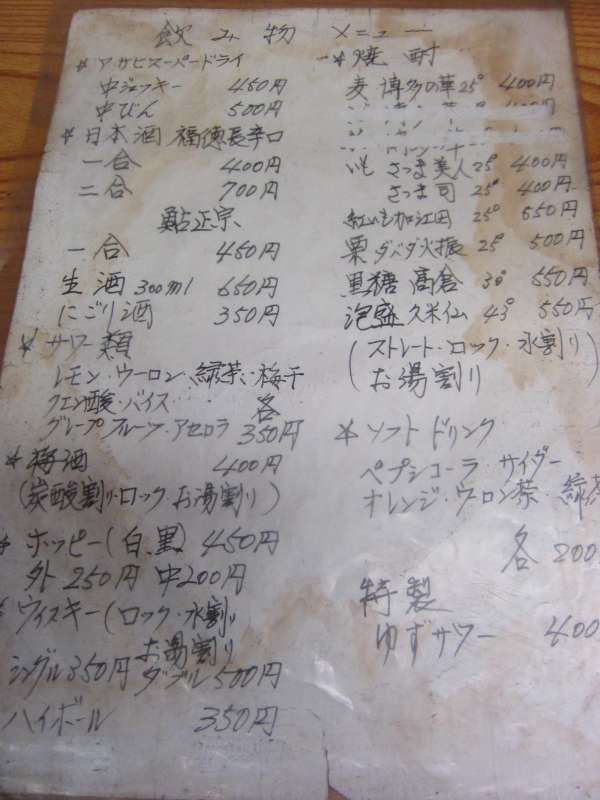 飲み物 メニュー
* アサヒスーパードライ
中ジョッキー 450円
中びん 500円
* 日本酒 福徳長辛口
一合 400円
二合 700円
正宗
一合 450円
生酒 300ml 650円
にごり酒 350円
* サワー類
レモン・ウーロン・緑茶・梅干
クエン酸・バイス 各
グレープフルーツ・アセロラ 350円
* 梅酒 400円
(炭酸割り・ロック・お湯割り)
* ホッピー(白、黒) 450円
外 250円 中 200円
* ウィスキー(ロック・水割り
お湯割り
シングル 350円 ダブル 500円
ハイボール 350円
* 焼酎
麦 博多の華 25° 400円
いも さつま美人 25° 400円
さつま司 25° 400円
紅いも加江田 25° 550円
栗 ダバダ火振 25° 500円
黒糖 高倉 30° 550円
泡盛 久米仙 43° 550円
(ストレート・ロック・水割り
お湯割り)
* ソフトドリンク
ペプシコーラ・サイダー
オレンジ・ウーロン茶・緑茶
各 200
特製
ゆずサワー 400